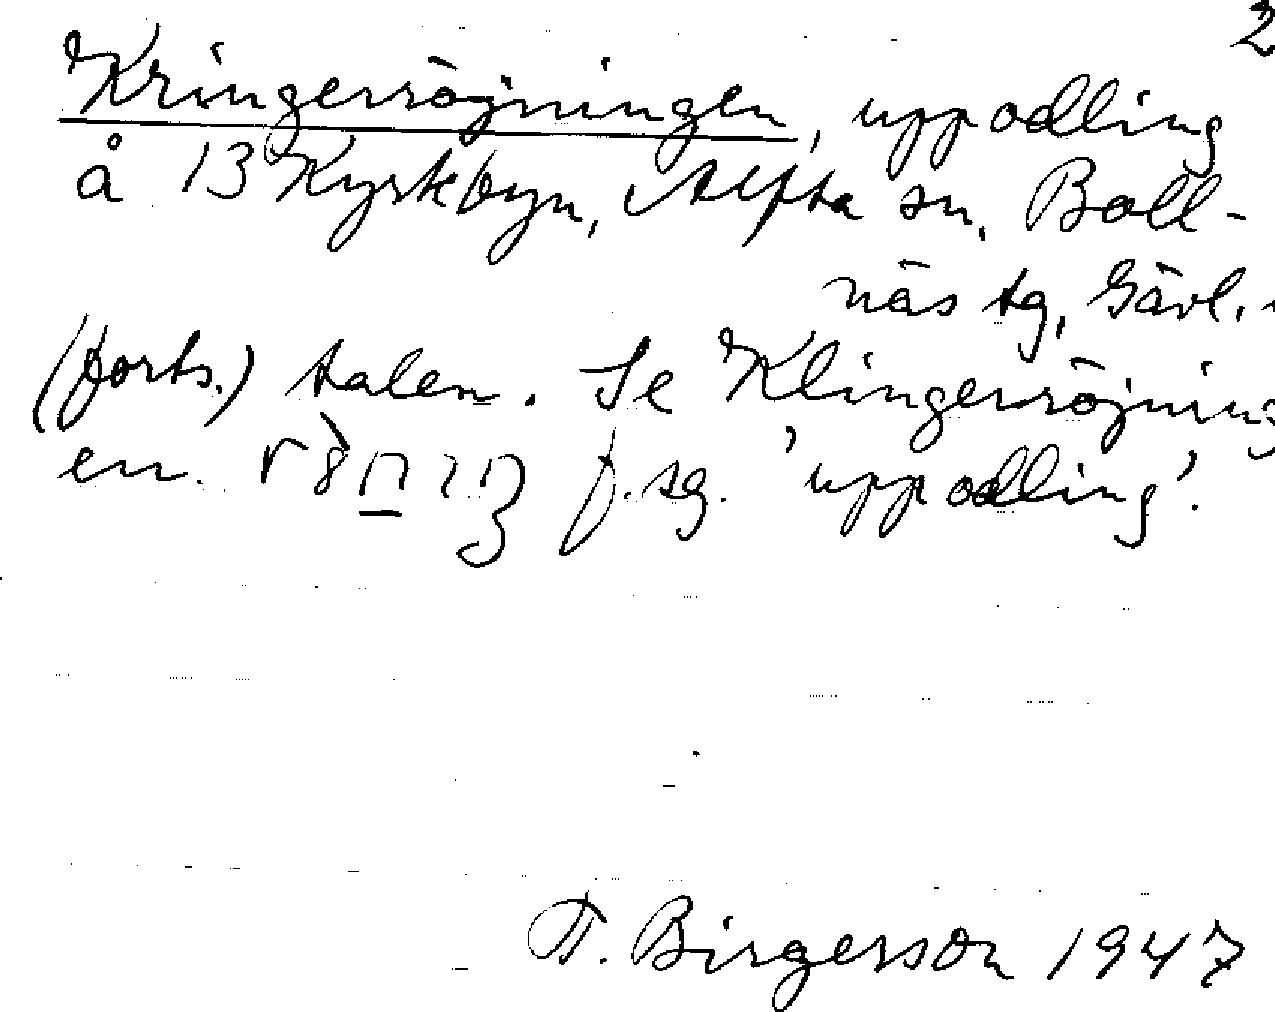 2
Kringerröjningen, uppodling
å 13 Kyrkbyn, Alfta sn, Boll-
näs tg, Gävl.
(forts.) talen. Se Klingerröjning
en. f. sg. 'uppodling'.
T. Birgerson 1947